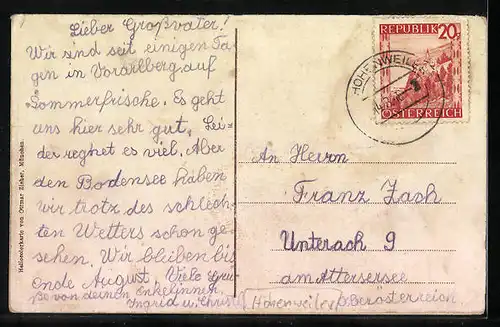 Lieber Großvater!
Wir sind seit einigen Ta-
gen in Vorarlberg auf
Sommerfrische. Es geht
uns hier sehr gut. Lei-
der regnet es viel. Aber
den Bodensee haben
wir trotz des schlech-
ten Wetters schon ge-
sehen. Wir bleiben bis
Ende August. Viele Grü-
ße von deinen Enkelinnen
Ingrid u. Christl
Heliondorkarte von Ottmar Zieher, München
REPUBLIK 20g
ÖSTERREICH
HOHENWEILER
An Herrn
Franz Zach
Unterach 9
am Attersersee
Hohenweiler Oberösterreich.